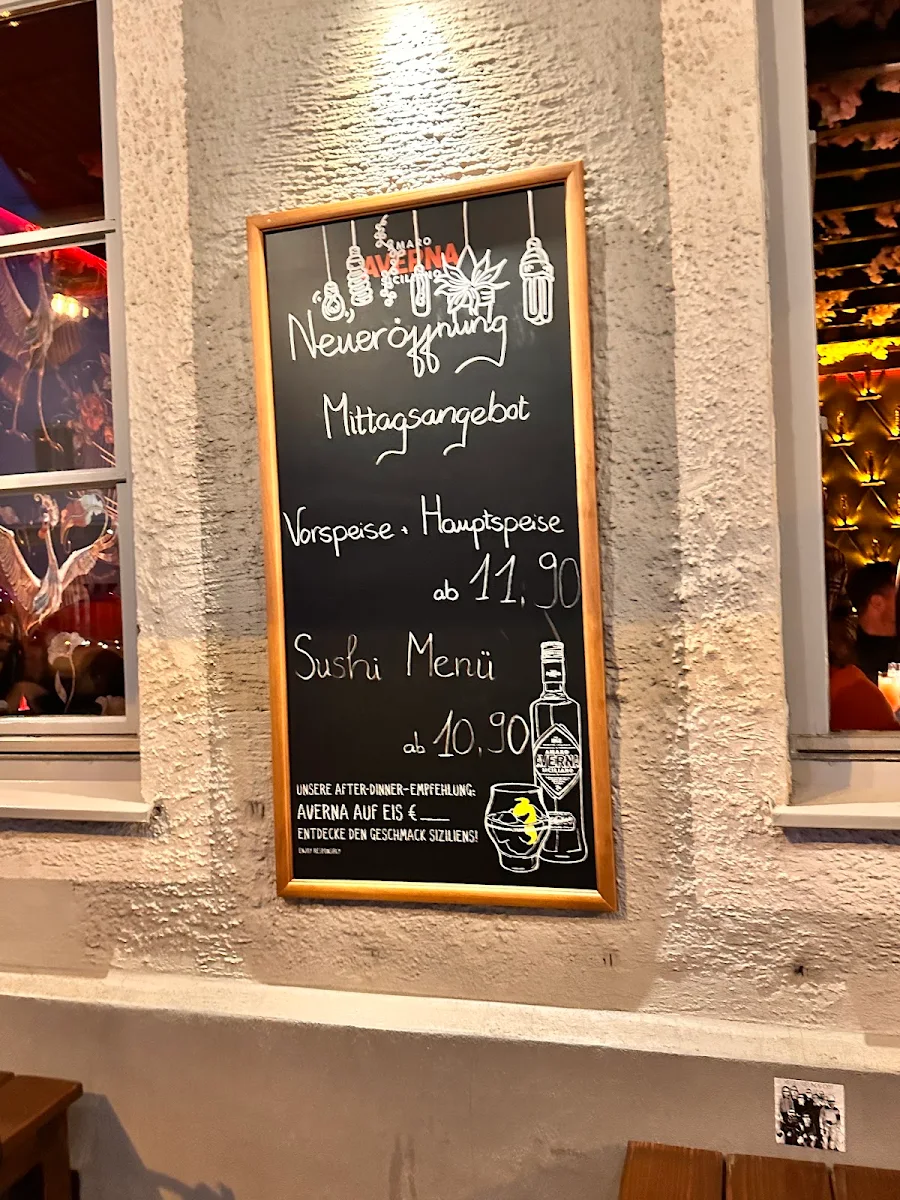 AMARO
AVERNA
SICILIANO
Neueröffnung
Mittagsangebot
Vorspeise + Hauptspeise
ab 11,90
Sushi Menü
ab 10,90
AMARO
AVERNA
SICILIANO
UNSERE AFTER-DINNER-EMPFEHLUNG:
AVERNA AUF EIS € ___
ENTDECKE DEN GESCHMACK SIZILIENS!
ENJOY RESPONSIBLY